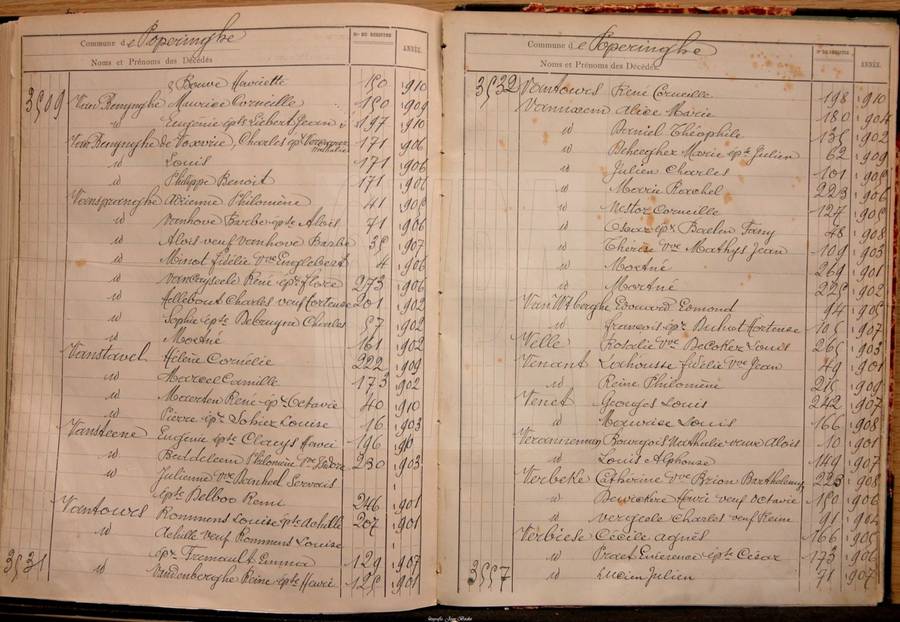 Commune de Poperinghe
Nos DU REGISTRE
ANNÉE.
Noms et Prénoms des Décédés
Bouve Henriette 150 910
3509 Van Renynghe Maurice Corneille 150 909
id Eugénie épse Liebert Jean 197 910
Van Renynghe de Voxvrie, Charles épx 171 906
id Louis 171 906
id Philippe Benoit 171 906
Vanspranghe Alienne Philomène 41 905
id Vanhove Barbe épse Alois 71 906
id Alois veuf Vanhove Barbe 35 907
id Minot Fidélie Vve Englebert 4 906
id Vancayseele René épx Florce 273 906
id Hellebout Charles veuf Hortense 201 902
id Sophie épse Debruyne Charles 57 902
id Mortné 161 902
Vanstavel Hélène Cornélie 222 909
id Marcel Camille 173 902
id Maerten René épx Octavie 40 910
id Pierre épx Sohier Louise 16 903
Vansteene Eugénie épse Claeys Henri 196 910
id Philomène Vve Isidore 230 903
id Julienne Vve Servais
épse Delboo Remi 246 901
Vantours Rommens Louise épse Achille 207 901
id Achille veuf Rommens Louise
épx Tremault Emma 129 907
3531 id Vandenberghe Reine épse Henri 125 901
Commune de Poperinghe
Nos DU REGISTRE
ANNÉE.
Noms et Prénoms des Décédés
3532 Vantours René Corneille 198 910
Vanuxem Alice Marie 180 904
id Daniel Théophile 135 902
id Marie épse Julien 62 909
id Julien Charles 101 905
id Marie Rachel 223 906
id Nestor Corneille 127 905
id César épx Baelen Fany 48 908
id Thérèse Vve Mathys Jean 109 903
id Mortné 269 901
id Mortné 225 902
Edouard Edmond 94 905
id François épx Hortense 105 907
Velle Rosalie Vve DeCoker Louis 265 903
Venant Lahousse Fidélie Vve Jean 49 901
id Reine Philomène 215 909
Venet Georges Louis 242 907
id Maurice Louis 166 908
Bourgois Nathalie veuve Alois 10 901
id Louis Alphonse 149 907
Verbeke Cathérine Vve Brion Barthelemy 223 908
id Henri veuf Octavie 150 906
id Charles veuf Reine 91 904
Verbiese Cécile Agnès 166 905
id épse César 173 906
3557 id Lucien Julien 91 907